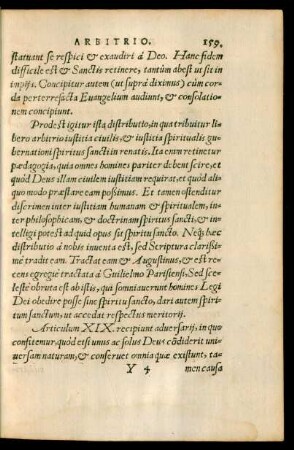 ARBITRIO. 159.
statuant se respici & exaudiri à Deo. Hanc fidem
difficile est & Sanctis retinere, tantùm abest ut sit in
impijs. Concipitur autem (ut suprà diximus) cùm cor-
da perterrefacta Euangelium audiunt, & consolatio-
nem concipiunt.
Prodest igitur ista distributio, in qua tribuitur li-
bero arbitrio iustitia ciuilis, & iustitia spiritualis gu-
bernationi spiritus sancti in renatis. Ita enim retinetur
pædagogia, quia omnes homines pariter debent scire, et
quòd Deus illam ciuilem iustitiam requirat, et quòd ali-
quo modo præstare eam possimus. Et tamen ostenditur
discrimen inter iustitiam humanam & spiritualem, in-
ter philosophicam, & doctrinam spiritus sancti, & in-
telligi potest ad quid opus sit spiritu sancto. Neq; hæc
distributio à nobis inuenta est, sed Scriptura clarissi-
mè tradit eam. Tractat eam & Augustinus, & est re-
cens egregiè tractata à Gulielmo Parisiensi, Sed sce-
lestè obruta est ab istis, qui somniauerunt homines Legi
Dei obedire posse sine spiritu sancto, dari autem spiri-
tum sanctum, ut accedat respectus meritorij.
Articulum XIX. recipiunt aduersarij, in quo
confitemur, quòd etsi unus ac solus Deus cõdiderit uni-
uersam naturam, & conseruet omnia quæ existunt, ta-
Y 4 men causa